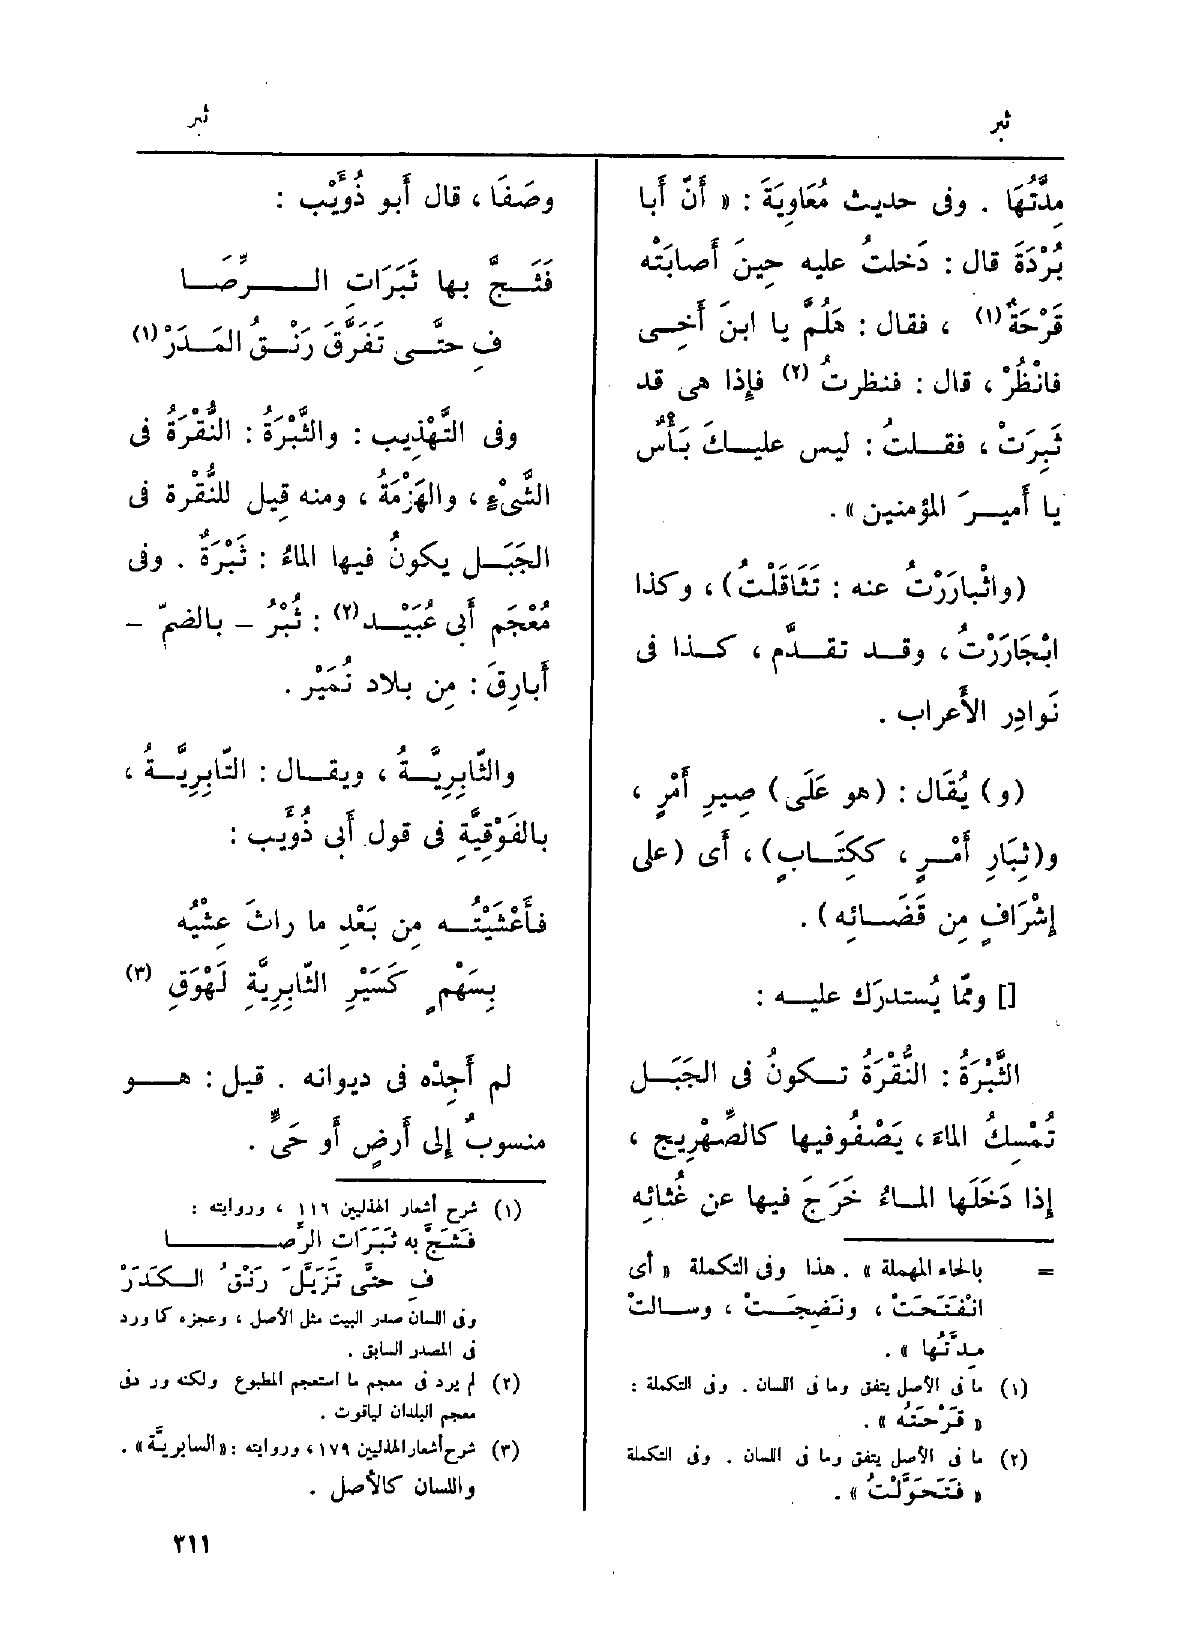 ثبر
ثبر
مِدَّتُهَا . وفى حديث مُعَاوِيَةَ : « أَنّ أَبا
بُرْدَةَ قال : دَخلتُ عليه حِينَ أَصابَتْه
قَرْحَةٌ (١) ، فقال : هَلُمَّ يا ابنَ أَخِـى
فانْظُرْ ، قال : فنظرتُ (٢) فإذا هى قد
ثَبِرَتْ ، فقـلتُ : ليس عليـكَ بَأْسٌ
يا أَميـرَ المؤمنين » .
(واثْبارَرْتُ عنه : تَثَاقَلْتُ) ، وكذا
ابْجَارَرْتُ ، وقـد تقـدَّم ، كـذا فى
نَوادِر الأَعراب .
(و) يُقَال : (هو عَلَى) صِيرِ أَمْرٍ ،
و(ثِبَارِ أَمْـرٍ ، ككِتَـابٍ) ، أَى (على
إِشْرَافٍ مِن قَضَـائِه) .
[] وممّا يُستدرَك عليـه :
الثَّبْرَةُ : النُّقْرَةُ تـكونُ فى الجَبَـل
تُمْسِكُ الماءَ ، يَصْفُوفيها كالصِّهْرِيج ،
إذا دَخَلَها المـاءُ خَرَجَ فيها عن غُثائه
= بالحاء المهملة » . هذا وفى التكملة « أى
انْفَتَحَتْ ، ونَضِجَـتْ ، وسـالتْ
مِدَّتُها » .
(١) ما فى الأصل يتفق وما فى اللسان . وفى التكملة :
« قَرْحَتُه » .
(٢) ما فى الأصل يتفق وما فى اللسان . وفى التكملة
« فَتَحَوَّلْتُ » .
وصَفَا ، قال أَبو ذُؤَيْب :
فَثَـجَّ بها ثَبَرَاتِ الـــرِّصَـا
فِ حتَّـى تَفَرَّقَ رَنْـقُ المَـدَرْ (١)
وفى التَّهْذِيب : والثَّبْرَةُ : النُّقْرَةُ فى
الشَّىْءِ ، والهَزْمَةُ ، ومنه قِيل للنُّقْرة فى
الجَبَـل يكونُ فيها الماءُ : ثَبْرَةٌ . وفى
مُعْجَم أَبى عُبَيْـد (٢) : ثُبْرُ – بالضمّ –
أَبارِقَ : مِن بلاد نُمَيْر .
والثّابِرِيَّـةُ ، ويقـال : التّابِرِيَّـةُ ،
بالفَوْقِيَّةِ فى قول أَبى ذُؤَيب :
فأَعْشَيْتُـه مِن بَعْدِ ما راثَ عِشْيُه
بِسَهْمٍ كَسَيْرِ الثّابِرِيَّةِ لَهْوَقِ (٣)
لم أَجِدْه فى ديوانه . قيل : هـو
منسوبٌ إلى أَرضٍ أَو حَىٍّ .
(١) شرح أشعار الهذليين ١١٦ ، وروايته :
فَشَجَّ به ثَبَرَاتِ الرِّصـــا
فِ حتَّى تَزَيَّلَ رَنْقُ الـكَدَرْ
وفى اللسان صدر البيت مثل الأصل ، وعجزه كما ورد
فى المصدر السابق .
(٢) لم يرد فى معجم ما استعجم المطبوع ولكنه ورد فى
معجم البلدان لياقوت .
(٣) شرح أشعار الهذليين ١٧٩ ، وروايته : « السابريَّة » .
واللسان كالأصل .
٣١١